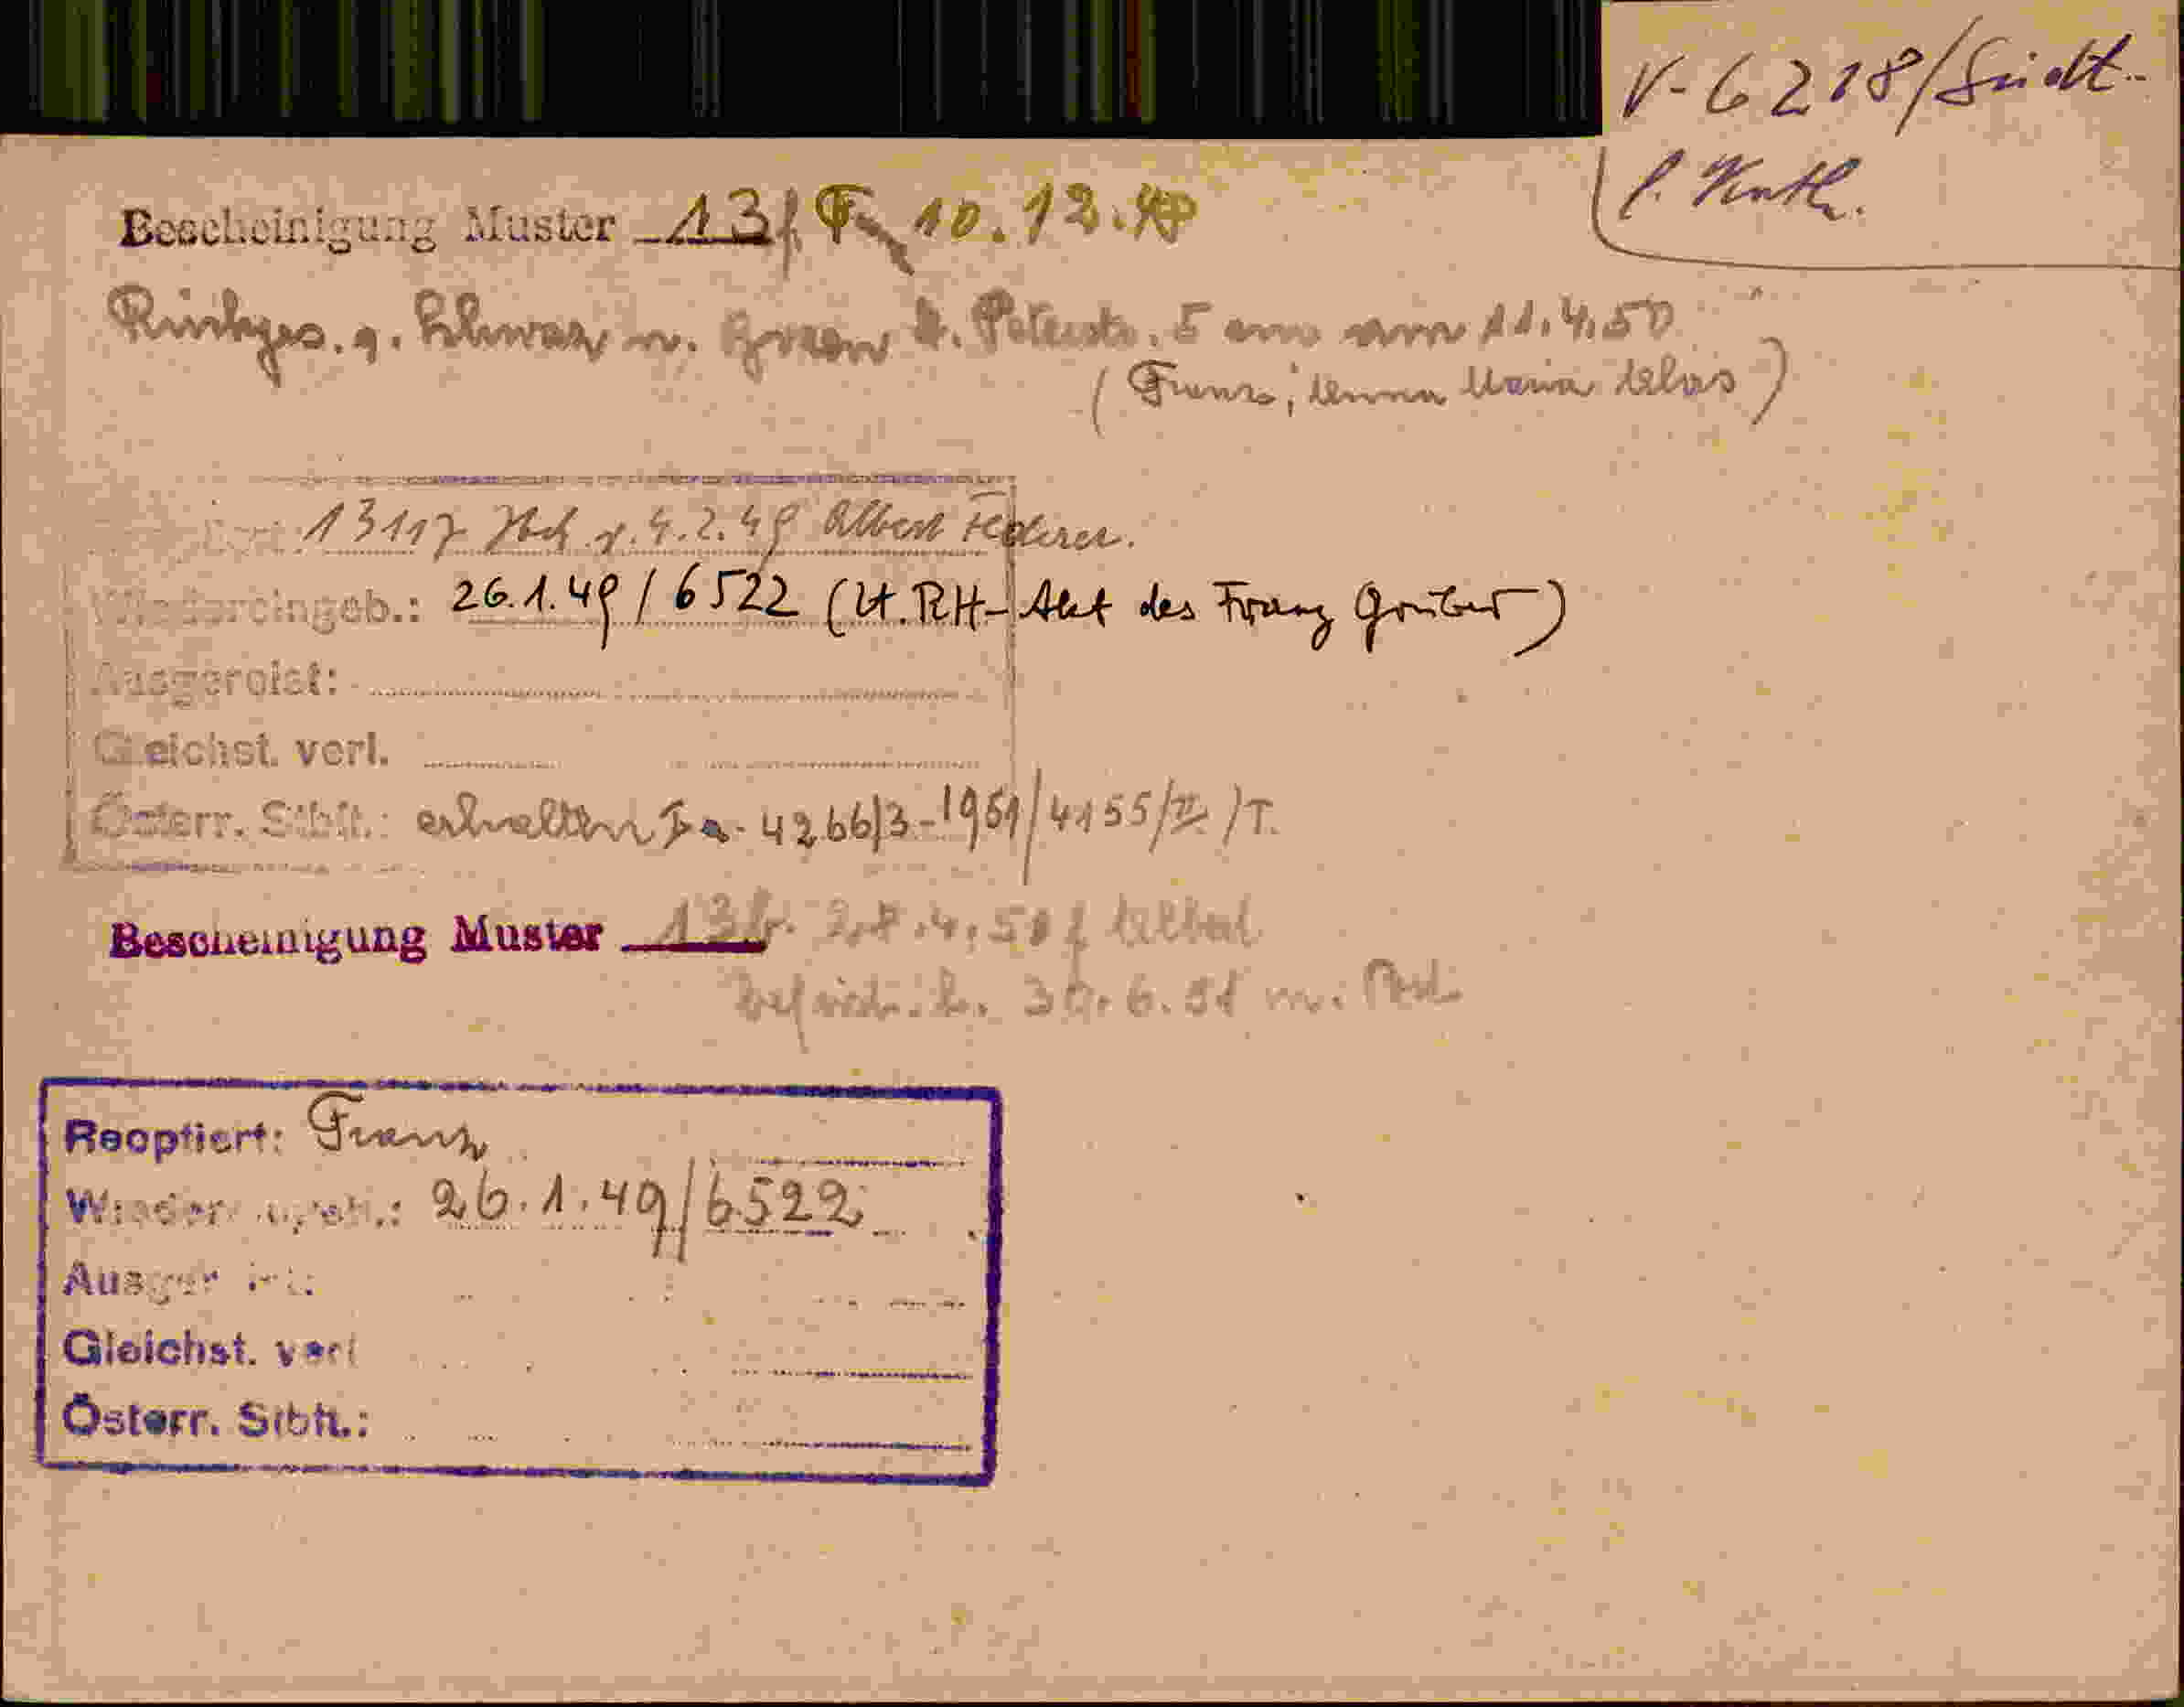 V-6218/Südt.
Bescheinigung Muster 13/F 10.12.49
Rückges. g. Schwaz n. 5 am 11.4.50
(Franz, Anna Maria)
13117 v. 4.2.49 Albert Federer.
Wiedereingeb.: 26.1.49/6522 (lt. RH-Akt des Franz Gruber)
Ausgereist:
Gleichst. verl.
Österr. Stbft.: erhalten Ia-4266/3-1951/4155/II/T.
Bescheinigung Muster 13b. 28.4.50 f.
befrist. b. 30.6.51 m.
Reoptiert: Franz
Wiedereingeb.: 26.1.49/6522
Ausgereist:
Gleichst. verl
Österr. Stbft.: